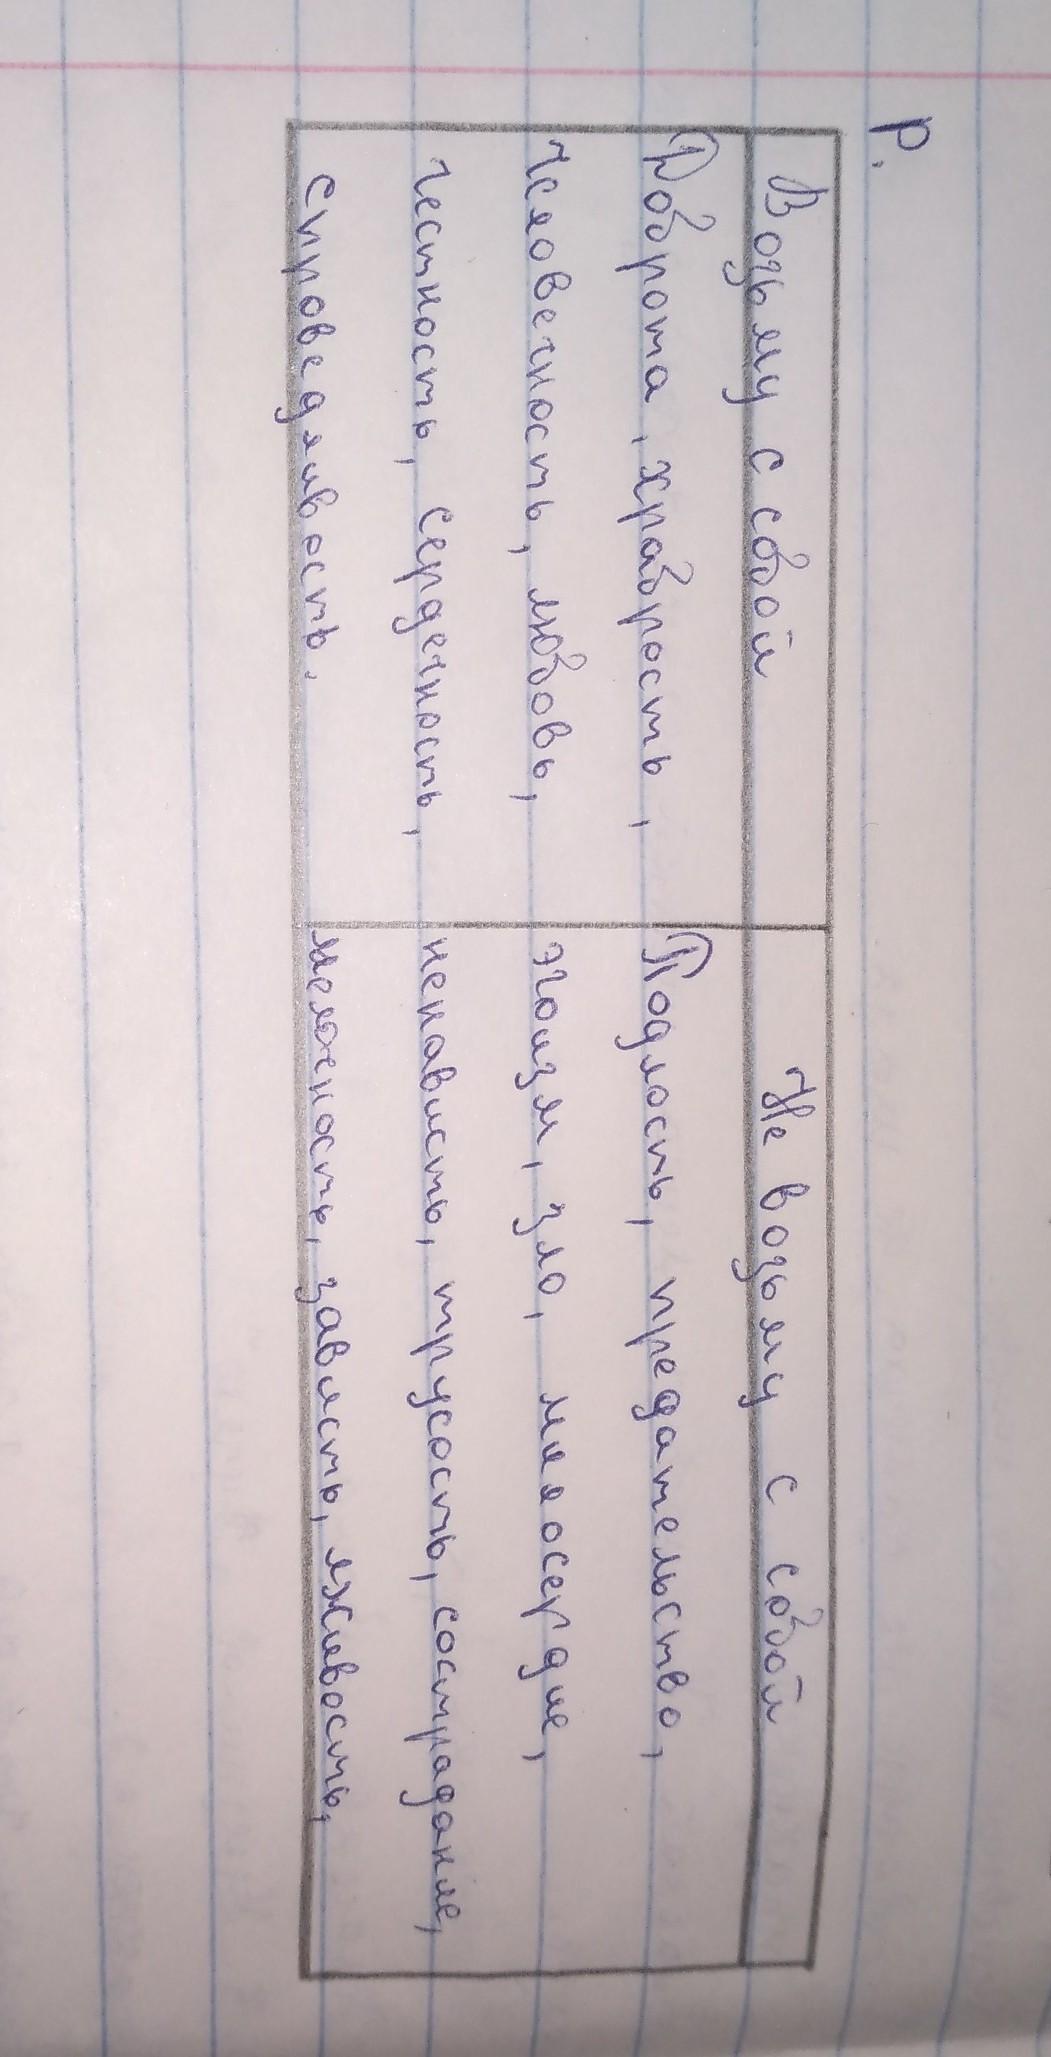 Р.
Возьму с собой Не возьму с собой
Доброта, храбрость, Подлость, предательство,
человечность, любовь, эгоизм, зло, милосердие,
честность, сердечность, ненависть, трусость, сострадание,
спроведливость. мелочность, зависть, лживость,